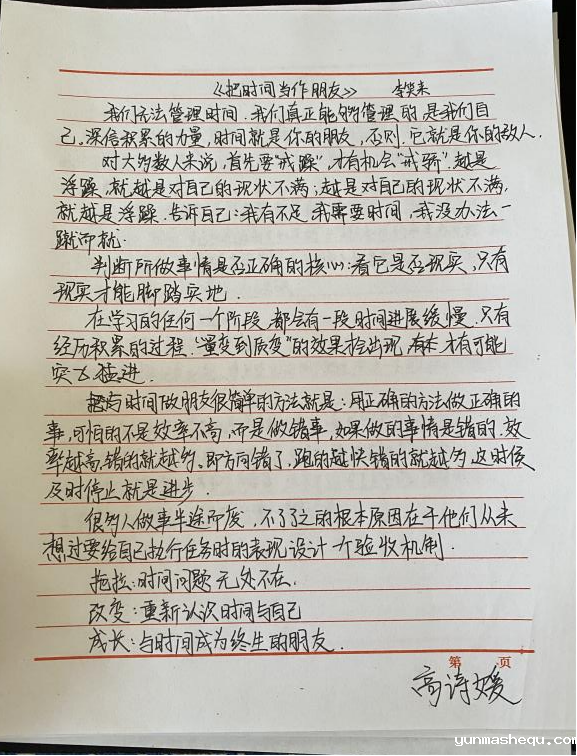 《把时间当作朋友》 李笑来
我们无法管理时间.我们真正能够管理的是我们自
己.深信积累的力量,时间就是你的朋友,否则,它就是你的敌人.
对大多数人来说,首先要"戒躁",才有机会"戒骄",越是
浮躁,就越是对自己的现状不满;越是对自己的现状不满,
就越是浮躁.告诉自己:我有不足,我需要时间,我没办法一
蹴而就.
判断所做事情是否正确的核心:看它是否现实,只有
现实才能脚踏实地.
在学习的任何一个阶段,都会有一段时间进展缓慢.只有
经历积累的过程,"量变到质变"的效果才会出现,才有可能
突飞猛进.
与时间做朋友很简单的方法就是:用正确的方法做正确的
事,可怕的不是效率不高,而是做错事,如果做的事情是错的,效
率越高,错的就越多,即方向错了,跑的越快错的就越多,这时候
及时停止就是进步.
很多人做事半途而废,不了了之的根本原因在于他们从来
想过要给自己执行任务时的表现设计一个验收机制.
拖拉:时间问题无处不在.
改变:重新认识时间与自己
成长:与时间成为终生的朋友.
第 页
高诗媛
yunmashequ.com